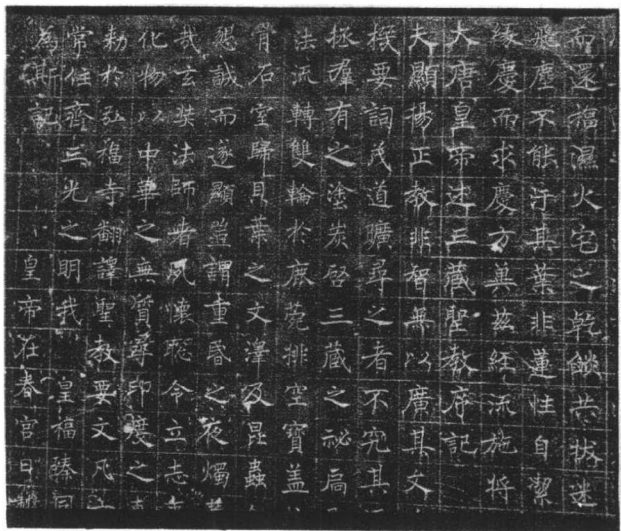 而還福濕火宅之乾燄共拔迷
飛塵不能汙其葉非蓮性自潔
緣慶而求慶方冀茲經流施將
大唐皇帝述三藏聖教序記
夫顯揚正教非智無以廣其文
機要詞茂道曠尋之者不究其
拯群有之塗炭啓三藏之祕扃
法流轉雙輪於鹿菀排空寶蓋
骨石室歸貝葉之文澤及昆蟲
懇誠而遂顯豈謂重昏之夜燭
哉玄奘法師者夙懷聡令立志
化物以中華之無質尋印度之
勑於弘福寺翻譯聖教要文凡
常住齊三光之明我皇福臻同
為斯記皇帝在春宮日製